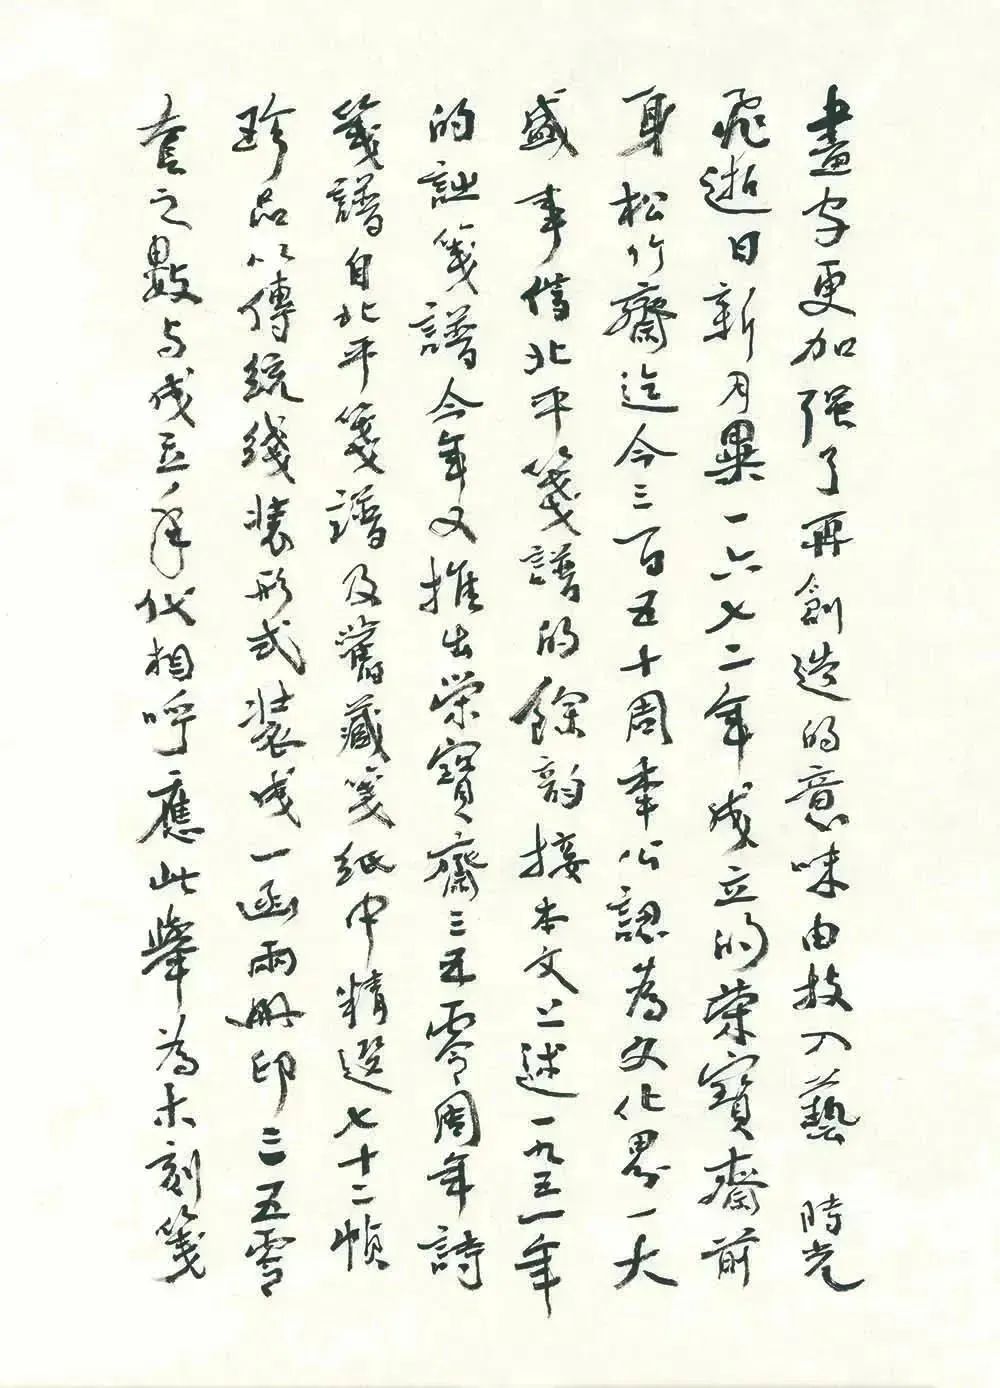 畫字更加强了再創造的意味由技入藝 時光
飛逝日新月異一六七二年成立的荣寳齋前
身松竹齋迄今三百五十周年公認為文化界一大
盛事借北平箋譜的餘韵接本文上述一九五一年
的詩箋譜今年又推出荣寳齋三五零周年詩
箋譜自北平箋譜及舊藏箋紙中精選七十二幀
珍品以傳統綫装形式装成一函兩册印三五零
套之數与成立年代相呼應此舉為木刻箋